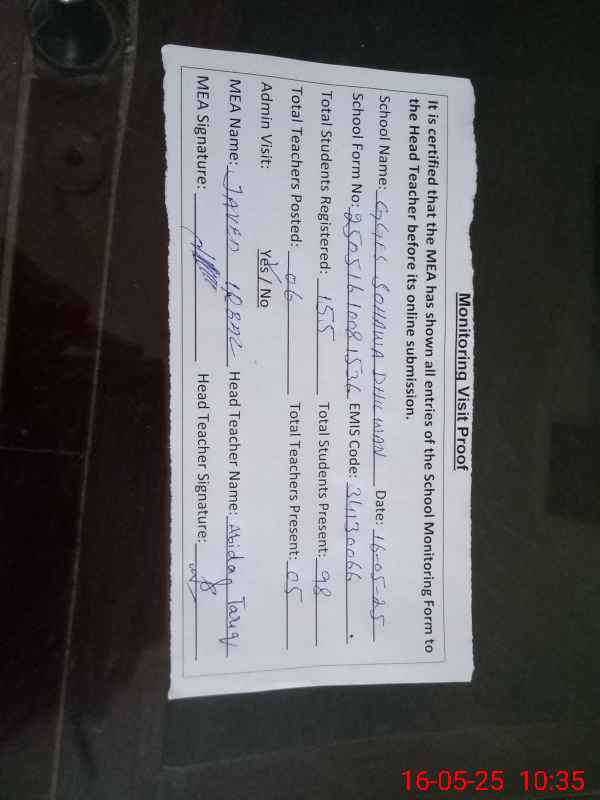 Monitoring Visit Proof
It is certified that the MEA has shown all entries of the School Monitoring Form to
the Head Teacher before its online submission.
School Name: GGES SOHAWA DHILWAN Date: 16-05-25
School Form No: 2505161008 1536 EMIS Code: 34130066
Total Students Registered: 155 Total Students Present: 98
Total Teachers Posted: 06 Total Teachers Present: 05
Admin Visit: Yes / No
MEA Name: JAVED IQBAL Head Teacher Name: Abidah Tariq
MEA Signature: Head Teacher Signature:
16-05-25 10:35